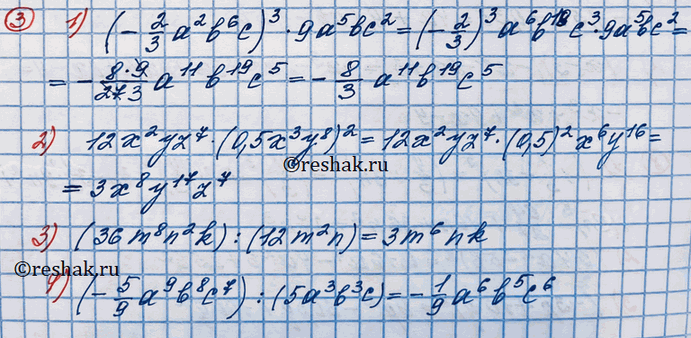 ③ 1) (-2/3 a²b⁶c)³ · 9a⁵bc² = (-2/3)³ a⁶b¹⁸c³ · 9a⁵bc² =
= - 8·9/27 3 a¹¹b¹⁹c⁵ = - 8/3 a¹¹b¹⁹c⁵
©reshak.ru
2) 12x²yz⁷ · (0,5x³y⁸)² = 12x²yz⁷ · (0,5)²x⁶y¹⁶ =
= 3x⁸y¹⁷z⁷
©reshak.ru
3) (36m⁸n²k) : (12m²n) = 3m⁶nk
©reshak.ru
4) (-5/9 a⁹b⁸c⁷) : (5a³b³c) = -1/9 a⁶b⁵c⁶